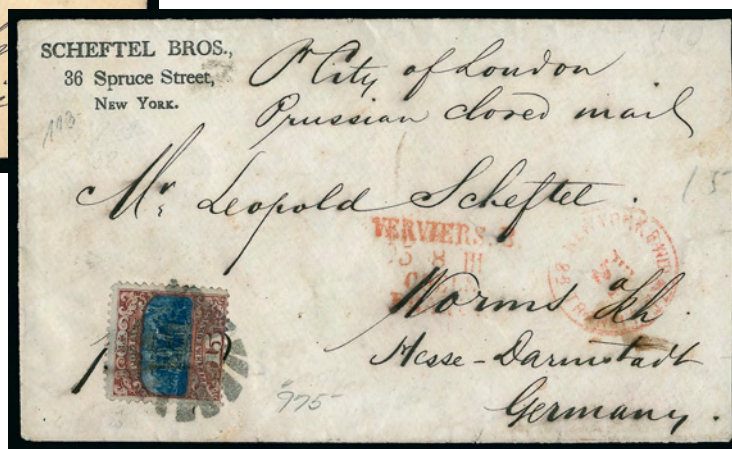 SCHEFTEL BROS.,
36 Spruce Street,
NEW YORK.
Pr City of London
Prussian closed mail
Mr. Leopold Scheftel.
VERVIERS.
8 III
NEW YORK
Worms a/Rh.
Hesse-Darmstadt
Germany.
15
975